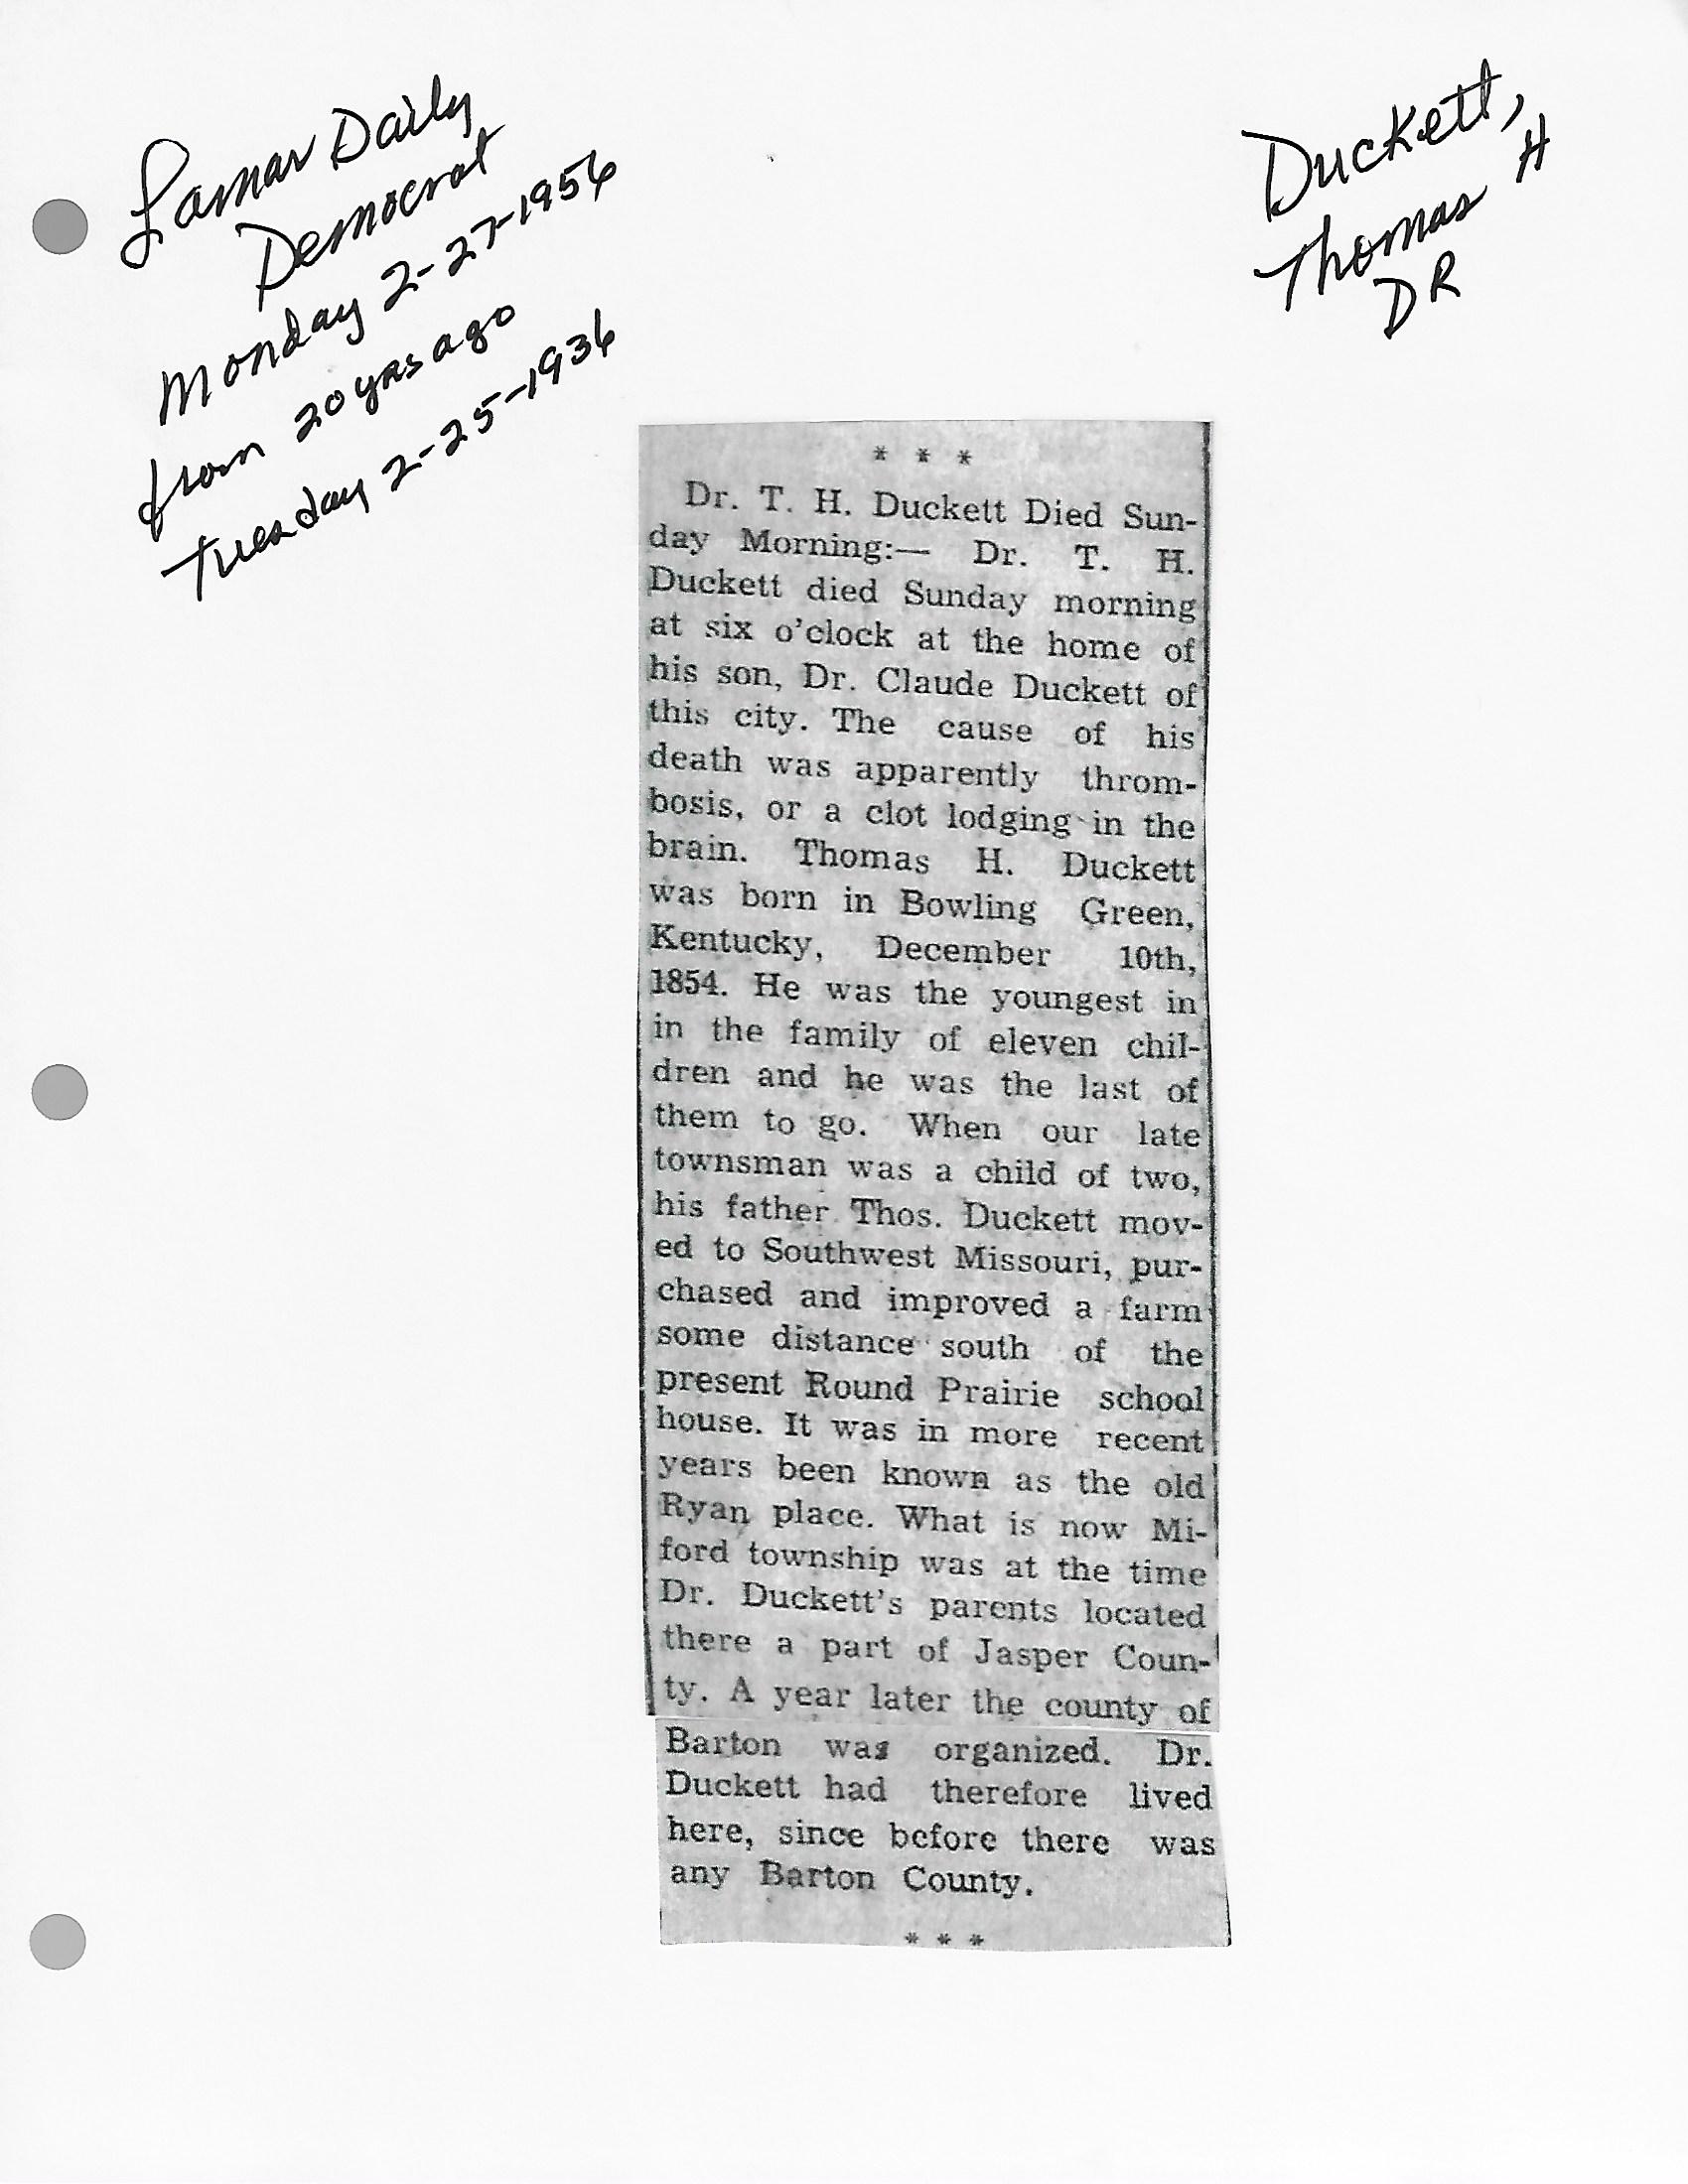 Lamar Daily
Democrat
Monday 2-27-1956
from 20 yrs ago
Tuesday 2-25-1936
Duckett,
Thomas H
DR
* * *
Dr. T. H. Duckett Died Sun-
day Morning:— Dr. T. H.
Duckett died Sunday morning
at six o'clock at the home of
his son, Dr. Claude Duckett of
this city. The cause of his
death was apparently throm-
bosis, or a clot lodging in the
brain. Thomas H. Duckett
was born in Bowling Green,
Kentucky, December 10th,
1854. He was the youngest in
in the family of eleven chil-
dren and he was the last of
them to go. When our late
townsman was a child of two,
his father Thos. Duckett mov-
ed to Southwest Missouri, pur-
chased and improved a farm
some distance south of the
present Round Prairie school
house. It was in more recent
years been known as the old
Ryan place. What is now Mi-
ford township was at the time
Dr. Duckett's parents located
there a part of Jasper Coun-
ty. A year later the county of
Barton was organized. Dr.
Duckett had therefore lived
here, since before there was
any Barton County.
* * *